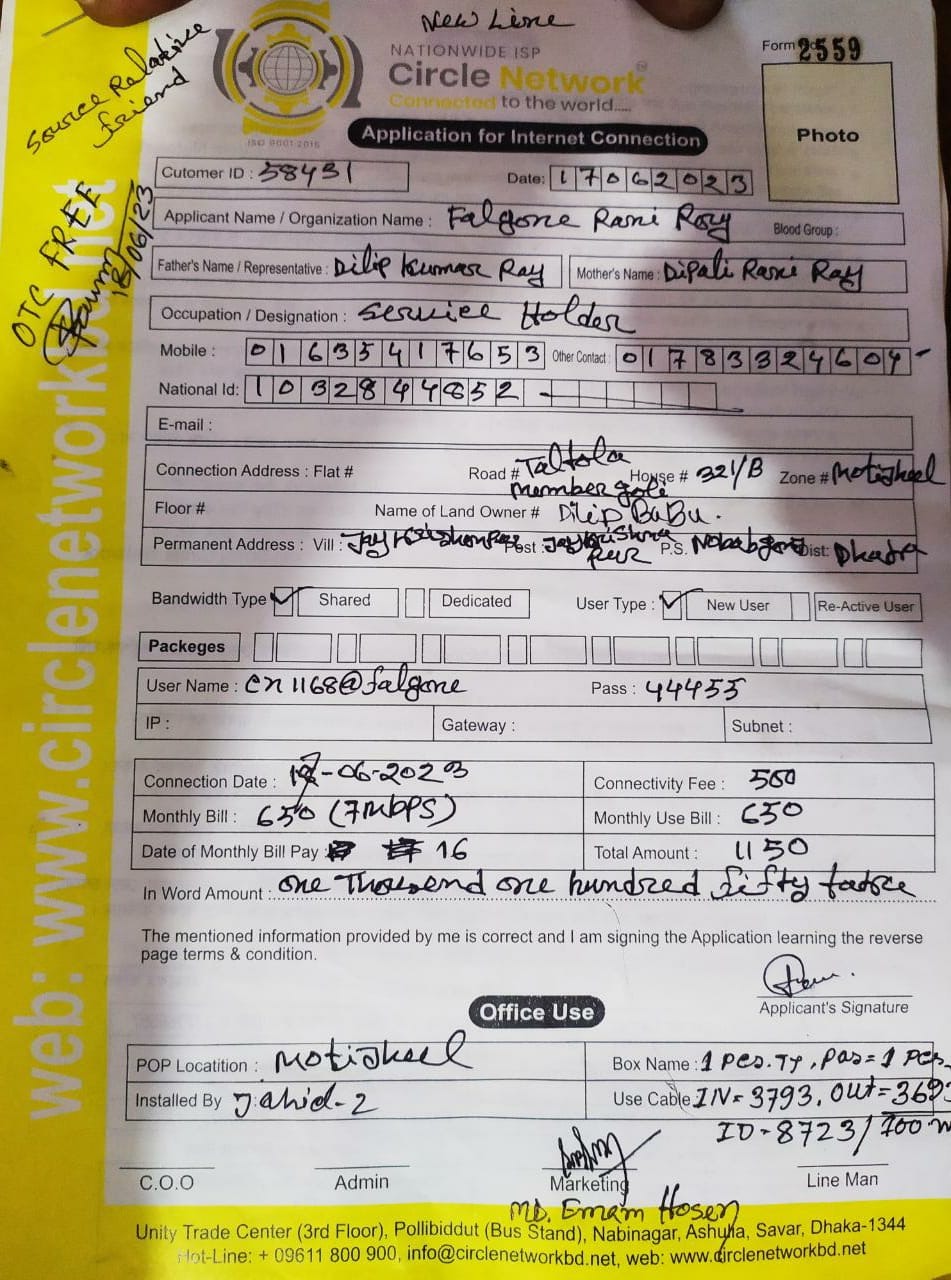 New Line
Source Relative
friend
NATIONWIDE ISP
Circle Network
Connected to the world.....
ISO 9001:2015
Form 2559
Application for Internet Connection
Photo
Cutomer ID : 38431
Date: 17062023
OTC FREE
18/06/23
Applicant Name / Organization Name : Falgone Rani Roy Blood Group :
Father's Name / Representative : Dilip Kumar Ray Mother's Name : Dipali Rani Ray
Occupation / Designation : Service Holder
Mobile : 01635417653 Other Contact : 01783324604
National Id: 1032844852
E-mail :
Connection Address : Flat # Road # Taltola member goli House # 321/B Zone # Motijheel
Floor # Name of Land Owner # Dilip BaBu.
Permanent Address : Vill : Post : P.S. Dist: Dhaka
Bandwidth Type Shared Dedicated User Type : New User Re-Active User
Packeges
User Name : cn1168@falgone Pass : 44455
IP : Gateway : Subnet :
Connection Date : -06-2023 Connectivity Fee : 500
Monthly Bill : 650 (7mbps) Monthly Use Bill : 650
Date of Monthly Bill Pay : 16 Total Amount : 1150
In Word Amount : one Thousend one hundred fifty
The mentioned information provided by me is correct and I am signing the Application learning the reverse
page terms & condition.
Applicant's Signature
Office Use
POP Locatition : Motijheel Box Name : 1 Pcs. TJ, = 1 Pcs
Installed By Jahid-2 Use Cable IN= 3793, Out=
ID-8723/700 m
C.O.O Admin Marketing Line Man
MD. Emam Hosen
Unity Trade Center (3rd Floor), Pollibiddut (Bus Stand), Nabinagar, Ashulia, Savar, Dhaka-1344
Hot-Line: + 09611 800 900, info@circlenetworkbd.net, web: www.circlenetworkbd.net
web: www.circlenetworkbd.net